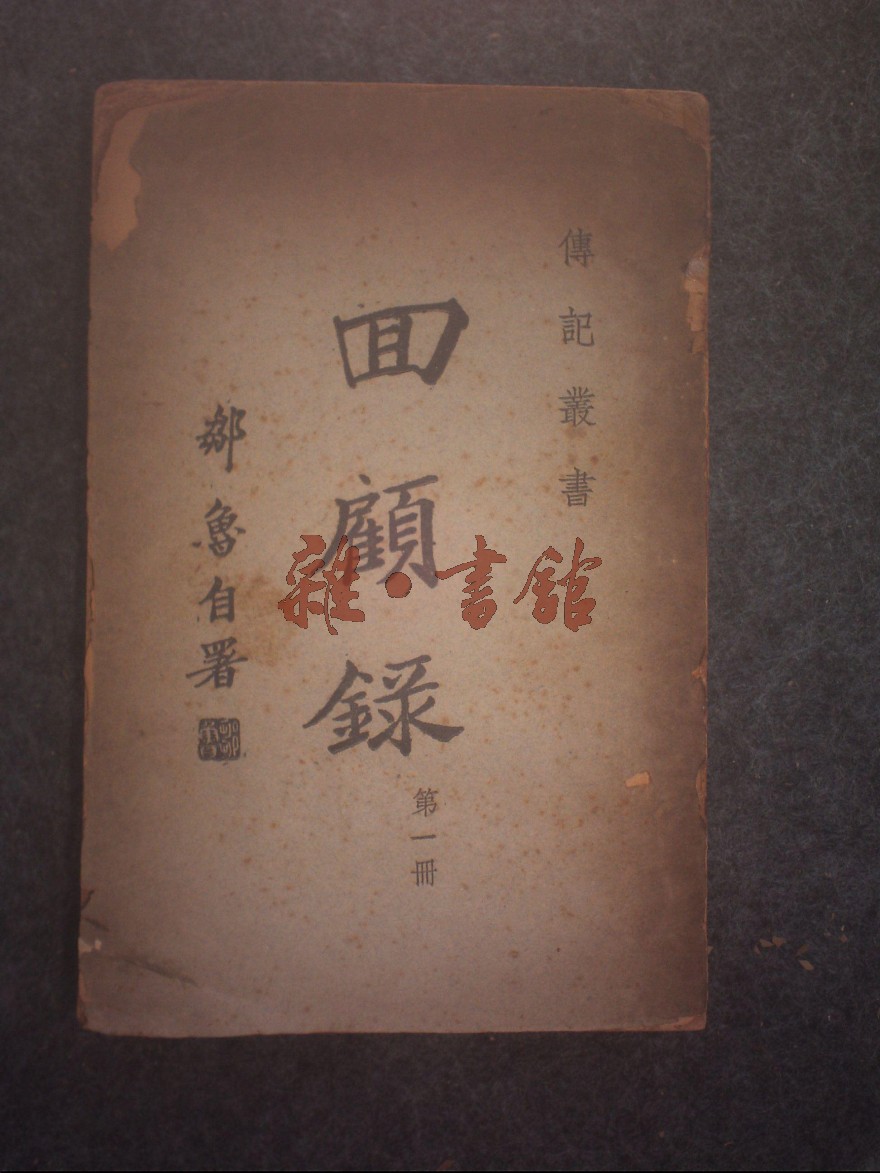 傳記叢書
回顧錄
第一冊
鄒魯自署
鄒魯
雜·書館